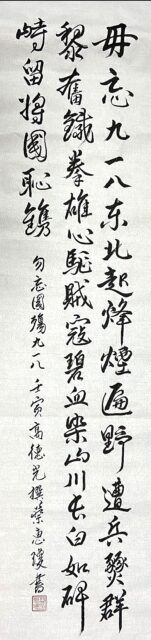 毋忘九一八东北起烽煙遍野遭兵燹群
黎奮鐵拳雄心駈賊寇碧血染山川长白如碑
峙留將國恥鐫
勿忘国殤九一八壬寅高德光撰惠瓊書